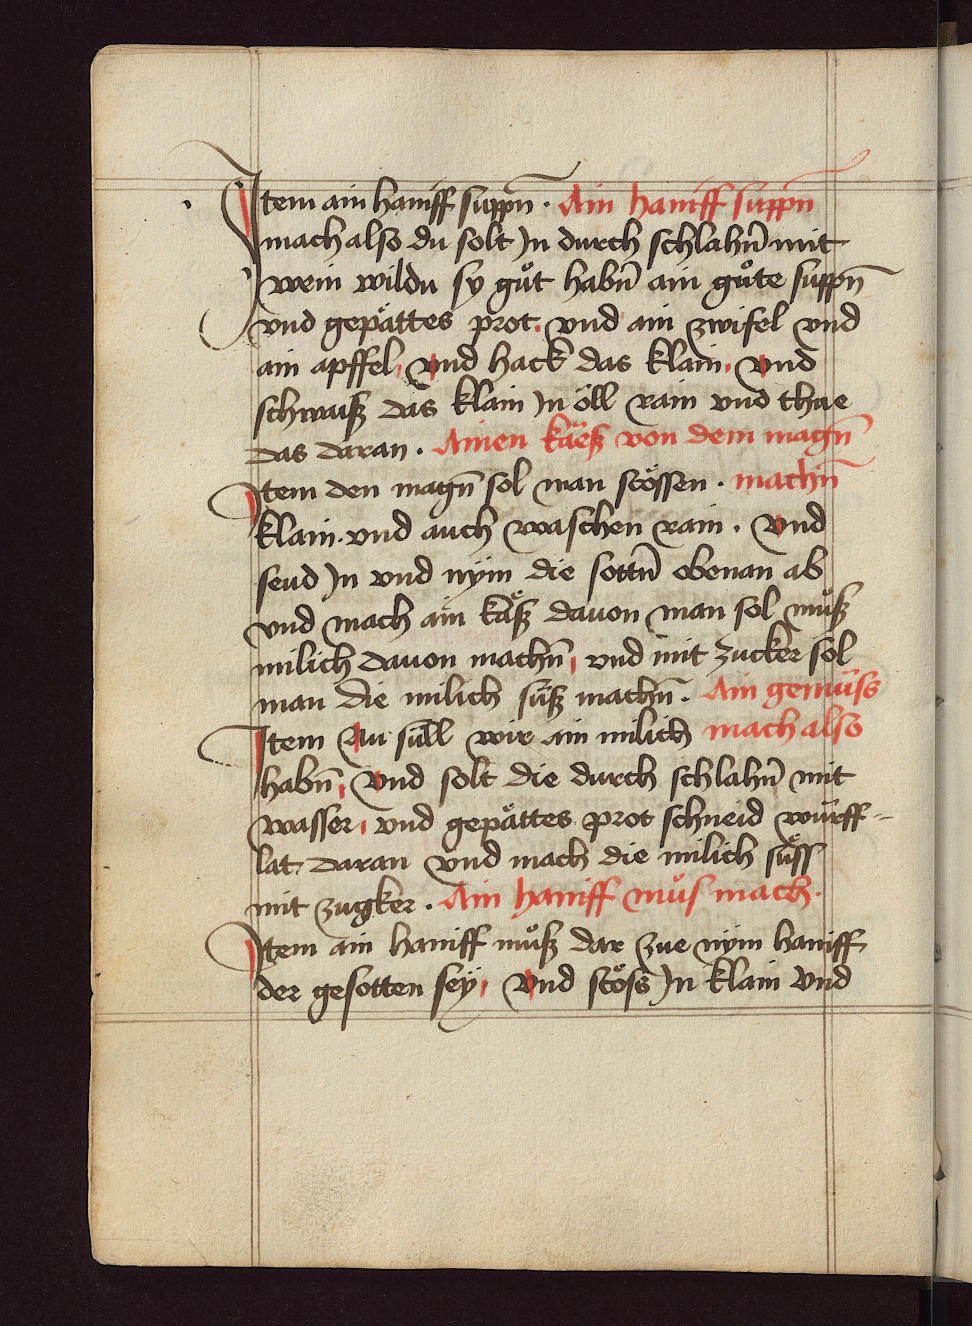 Item ain haniff suppn̄ · Ain haniff suppn̄
mach also du solt Jn durch schlahn̄ mit
wein wildu sy gůt habn̄ ain gůte suppn̄
vnd gepättes prot. vnd ain zwifel vnd
ain apffel, vnd hack das klain, vnd
schwaisz das klain Jn öll rain vnd thue
das daran . Ainen käesz von dem magn̄
Item den magn̄ sol man stössen . machn̄
klain. vnd auch waschen rain . vnd
seud Jn vnd nym die sottn̄ obenan ab
vnd mach ain käsz dauon man sol můsz
milich dauon machn̄, vnd mit zucker sol
man die milich süsz machn̄. Ain gemüss
Item zu süll wir ain milich mach also
habn̄, vnd solt die durch schlahn̄ mit
wasser, vnd gepättes prot schneid würff-
lat daran vnd mach die milich süss
mit zugker . Ain haniff můs mach.
Item ain haniff můsz dar zue nym haniff
der gesotten seÿ, vnd stöss Jn klain vnd